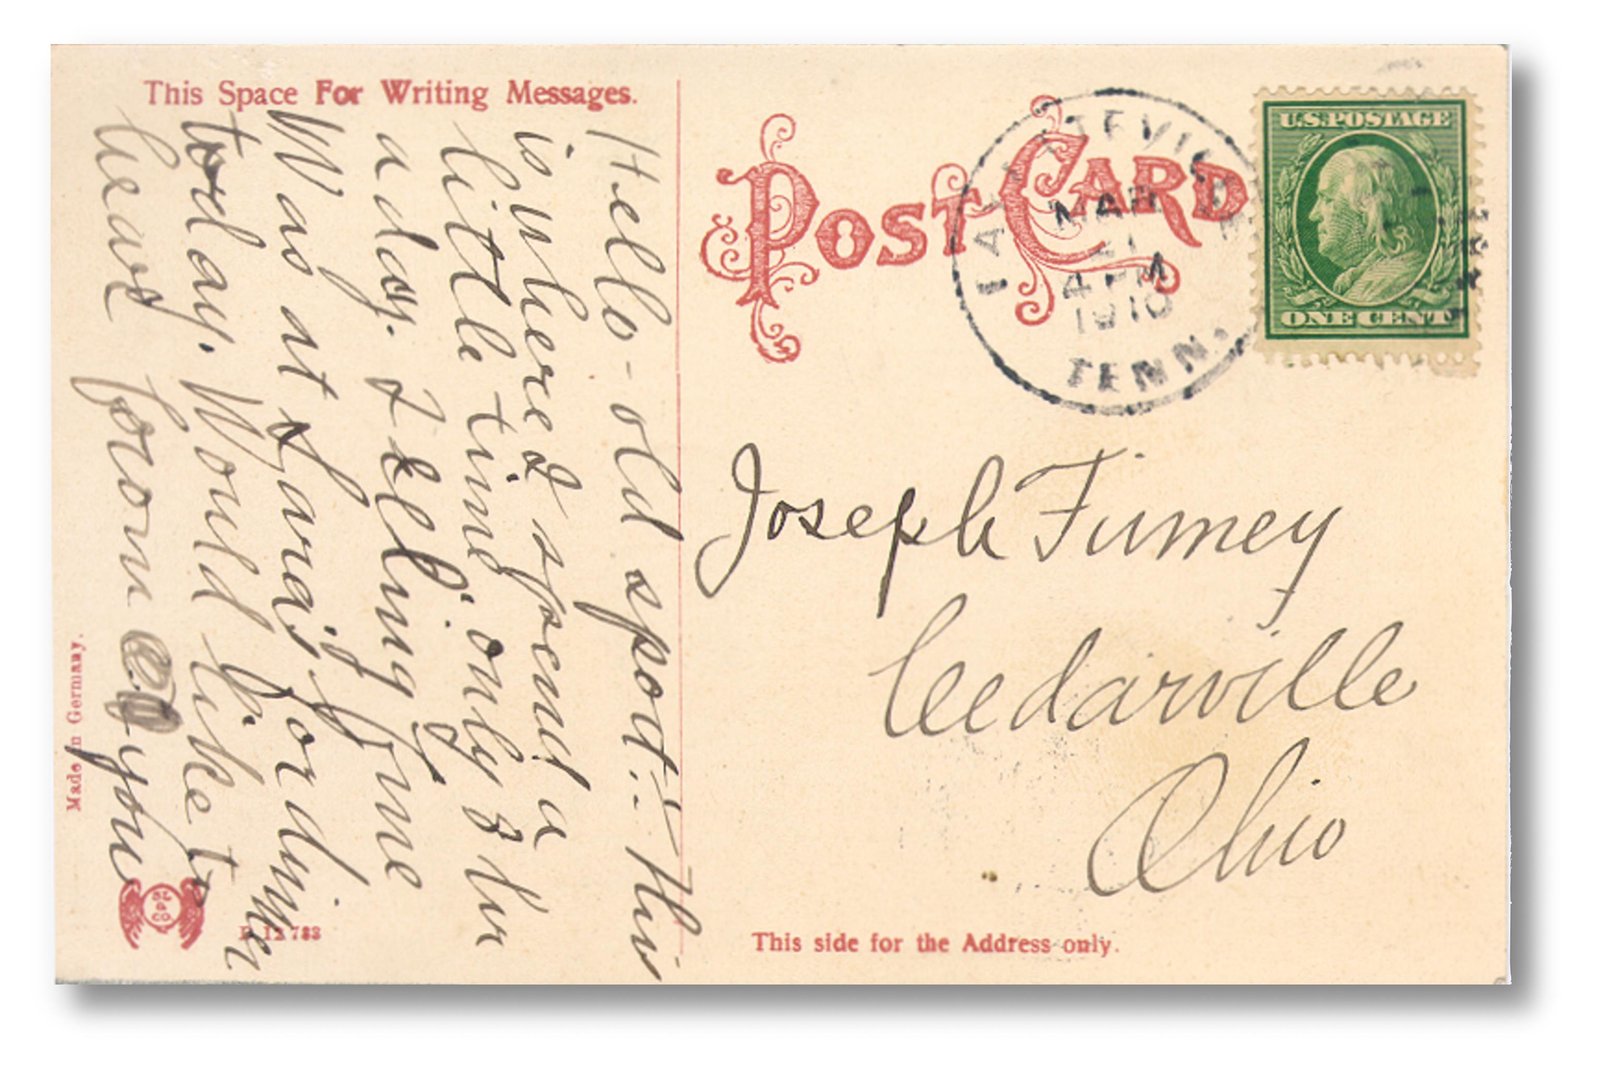 This Space For Writing Messages.
Hello - old sport:- This
is where I spend a
little time only 3 hr
a day. Feeling fine
Was at Sara's for dinner
today. Would like to
hear from you
Made in Germany.
POST CARD
MAR
4 PM
1910
TENN.
U.S. POSTAGE
ONE CENT
Joseph Finney
Cedarville
Ohio
This side for the Address only.